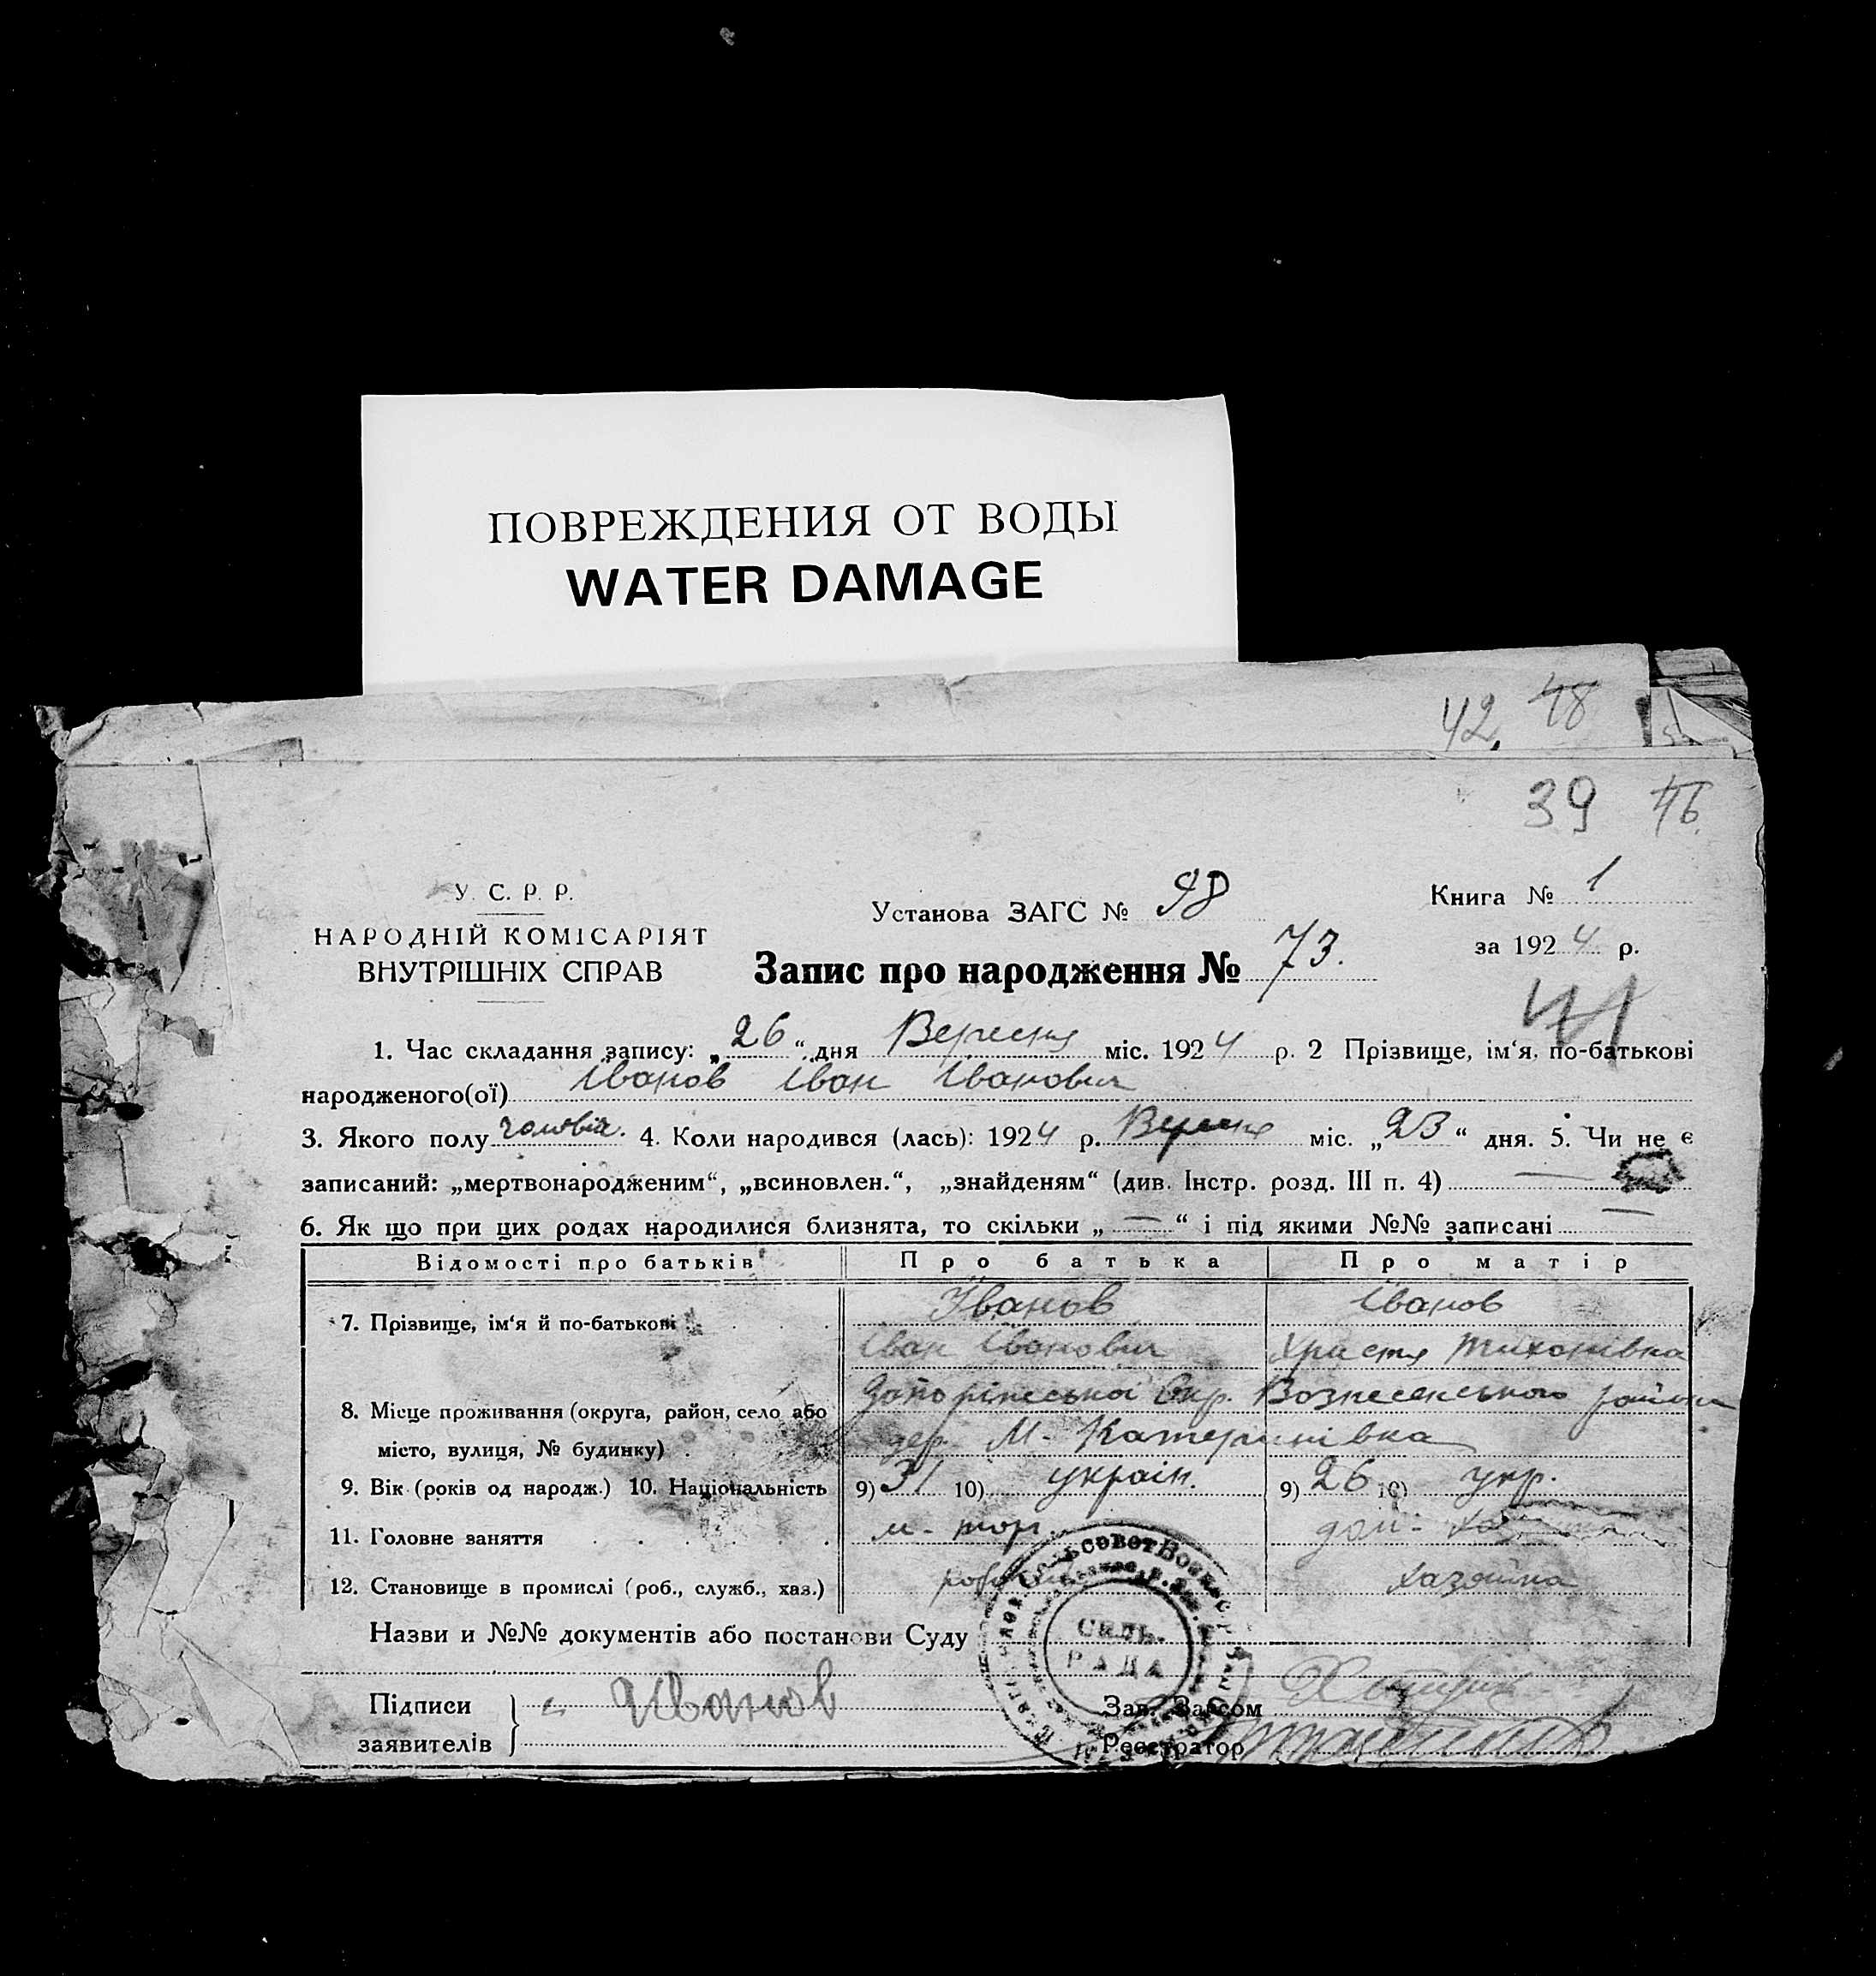 ПОВРЕЖДЕНИЯ ОТ ВОДЫ
WATER DAMAGE
42. 48
39 46
У. С. Р. Р.
НАРОДНІЙ КОМІСАРІЯТ
ВНУТРІШНІХ СПРАВ
Установа ЗАГС № 98
Запис про народження № 73.
Книга № 1
за 1924 р.
41
1. Час складання запису: „26“ дня Вересня міс. 1924 р. 2 Прізвище, ім‘я, по-батькові
народженого(ої) Іванов Іван Іванович
3. Якого полу чоловіч. 4. Коли народився (лась): 1924 р. Вересня міс. „23“ дня. 5. Чи не є
записаний: „мертвонародженим“, „всиновлен.“, „знайденям“ (див. Інстр. розд. III п. 4) —
6. Як що при цих родах народилися близнята, то скільки „—“ і під якими №№ записані —
Відомості про батьків Про батька Про матір
7. Прізвище, ім‘я й по-батькові Іванов Іванов
Іван Іванович Христя Тихонівна
8. Місце проживання (округа, район, село або Запоріжської Окр. Вознесенського району
місто, вулиця, № будинку) дер. М. Катеринівка
9. Вік (років од народж.) 10. Національність 9) 31 10) україн. 9) 26 10) укр.
11. Головне заняття дом.
12. Становище в промислі (роб., служб., хаз.) хазяйка
Назви и №№ документів або постанови Суду
СІЛЬ-
РАДА
Підписи Иванов Зав. Загсом
заявителів Реєстратор